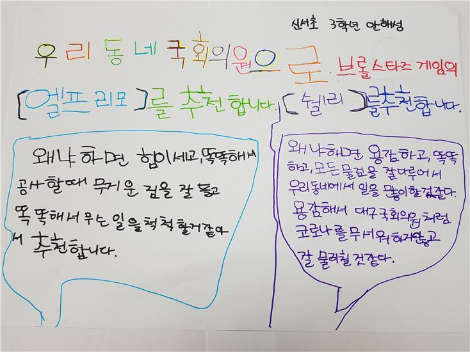 신서초 3학년 안해성
우리동네국회의원으로 브롤스타즈 게임의
[엘프리모]를 추천합니다. [쉘리]를추천합니다.
왜냐하면 힘이세고, 똑똑해서
공사할때 무거운 검을 잘 들고
똑똑해서 무슨 일을 척척 할거같아
서 추천합니다.
왜냐하면 용감하고, 똑똑
하고, 모든 물건을 잘다루어서
우리동네에서 일을 많이할것같다.
용감해서 대구국회의원처럼
코로나를 무서워하지않고
잘 물리칠것같다.